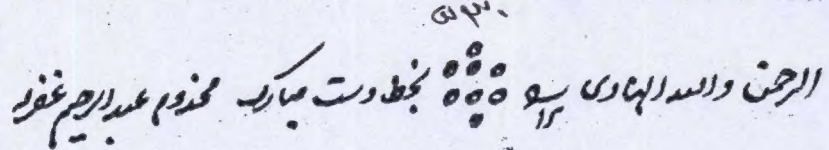 الرحمن والله الهادی بخط دست مبارک مخدوم عبدالرحیم غفرله